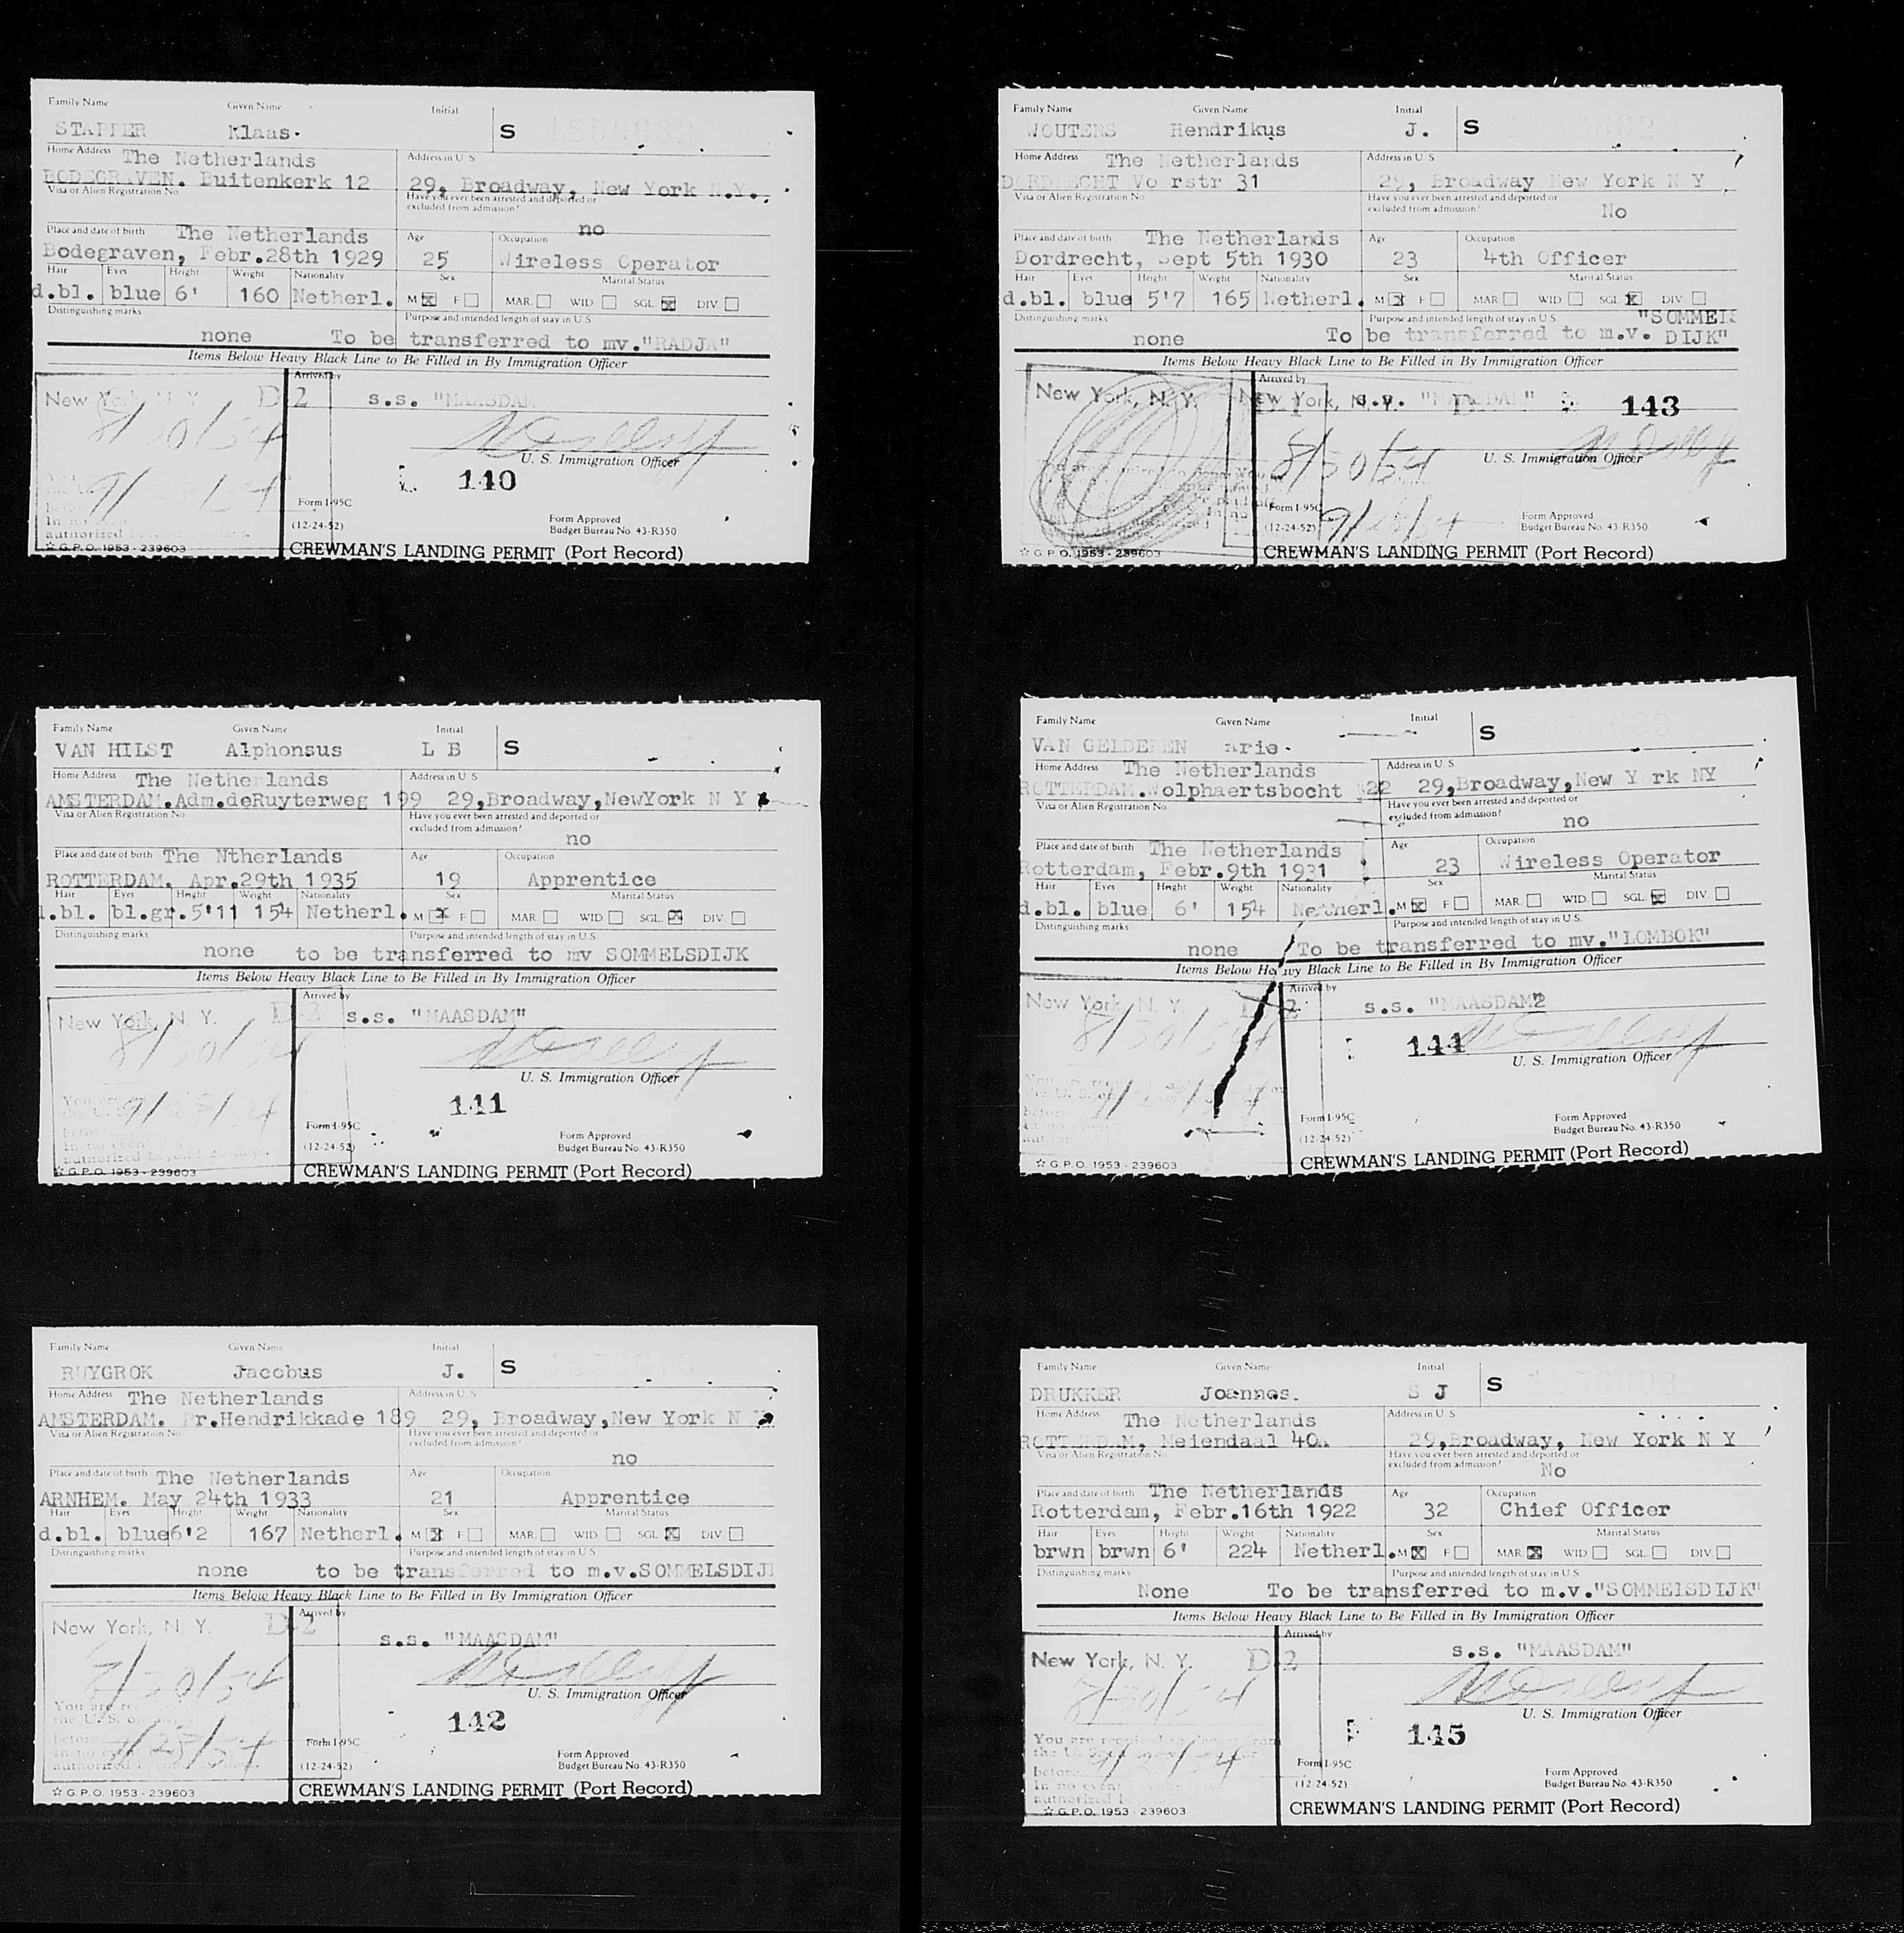 Family Name Given Name Initial
STAPPER Klaas. S
Home Address The Netherlands Address in U. S.
BODEGRAVEN. Buitenkerk 12 29, Broadway, New York N.Y.
Visa or Alien Registration No. Have you ever been arrested and deported or
excluded from admission?
no
Place and date of birth The Netherlands Age Occupation
Bodegraven, Febr.28th 1929 25 Wireless Operator
Hair Eyes Height Weight Nationality Sex Marital Status
d.bl. blue 6' 160 Netherl. M F MAR. WID. SGL. DIV.
Distinguishing marks Purpose and intended length of stay in U.S.
none To be transferred to mv."RADJA"
Items Below Heavy Black Line to Be Filled in By Immigration Officer
Arrived by
New York, N. Y. D 2 s.s. "MAASDAM
8/30/54
U. S. Immigration Officer
140
Form I-95C
(12-24-52) Form Approved
Budget Bureau No. 43-R350
authorized
☆ G.P.O. 1953 - 239603 CREWMAN'S LANDING PERMIT (Port Record)
Family Name Given Name Initial
VAN HILST Alphonsus L B S
Home Address The Netherlands Address in U.S.
AMSTERDAM.Adm.deRuyterweg 199 29,Broadway,NewYork N Y
Visa or Alien Registration No. Have you ever been arrested and deported or
excluded from admission?
no
Place and date of birth The Ntherlands Age Occupation
ROTTERDAM. Apr.29th 1935 19 Apprentice
Hair Eyes Height Weight Nationality Sex Marital Status
d.bl. bl.gr. 5'11 154 Netherl. M F MAR. WID. SGL. DIV.
Distinguishing marks Purpose and intended length of stay in U.S.
none to be transferred to mv SOMMELSDIJK
Items Below Heavy Black Line to Be Filled in By Immigration Officer
Arrived by
New York, N. Y. D 2 s.s. "MAASDAM"
8/30/54
U. S. Immigration Officer
141
Form I-95C
(12-24-52) Form Approved
Budget Bureau No. 43-R350
☆ G.P.O. 1953 - 239603 CREWMAN'S LANDING PERMIT (Port Record)
Family Name Given Name Initial
RUYGROK Jacobus J. S
Home Address The Netherlands Address in U.S.
AMSTERDAM. Pr.Hendrikkade 189 29, Broadway,New York N Y.
Visa or Alien Registration No. Have you ever been arrested and deported or
excluded from admission?
no
Place and date of birth The Netherlands Age Occupation
ARNHEM. May 24th 1933 21 Apprentice
Hair Eyes Height Weight Nationality Sex Marital Status
d.bl. blue 6'2 167 Netherl. M F MAR. WID SGL DIV.
Distinguishing marks Purpose and intended length of stay in U.S
none to be transferred to m.v.SOMMELSDIJK
Items Below Heavy Black Line to Be Filled in By Immigration Officer
Arrived by
New York, N. Y. D-2 s.s. "MAASDAM"
8/30/54
U. S. Immigration Officer
9/28/54 142
Form I-95C
(12-24-52) Form Approved
Budget Bureau No. 43-R350
☆ G.P.O. 1953 - 239603 CREWMAN'S LANDING PERMIT (Port Record)
Family Name Given Name Initial
WOUTERS Hendrikus J. S
Home Address The Netherlands Address in U.S.
DORDRECHT Vo rstr 31 29, Broadway New York N Y
Visa or Alien Registration No. Have you ever been arrested and deported or
excluded from admission?
No
Place and date of birth The Netherlands Age Occupation
Dordrecht, Sept 5th 1930 23 4th Officer
Hair Eyes Height Weight Nationality Sex Marital Status
d.bl. blue 5'7 165 Netherl. M F MAR. WID SGL DIV.
Distinguishing marks Purpose and intended length of stay in U.S. "SOMMELS
none To be transferred to m.v. DIJK"
Items Below Heavy Black Line to Be Filled in By Immigration Officer
Arrived by
New York, N. Y. New York, N. Y. s.s. "MAASDAM" 143
8/30/54 U. S. Immigration Officer
Form I-95C
(12-24-52) Form Approved
Budget Bureau No. 43-R350
☆ G.P.O. 1953 - 239603 CREWMAN'S LANDING PERMIT (Port Record)
Family Name Given Name Initial
VAN GELDEREN Arie. S
Home Address The Netherlands Address in U.S.
ROTTERDAM.Wolphaertsbocht 322 29,Broadway,New Y rk NY
Visa or Alien Registration No. Have you ever been arrested and deported or
excluded from admission?
no
Place and date of birth The Netherlands Age Occupation
Rotterdam, Febr.9th 1931 23 Wireless Operator
Hair Eyes Height Weight Nationality Sex Marital Status
d.bl. blue 6' 154 Netherl. M F MAR. WID. SGL. DIV.
Distinguishing marks Purpose and intended length of stay in U.S.
none To be transferred to mv."LOMBOK"
Items Below Heavy Black Line to Be Filled in By Immigration Officer
Arrived by
New York, N. Y. s.s. "MAASDAM2
8/30/54 144
U. S. Immigration Officer
Form I-95C
(12-24-52) Form Approved
Budget Bureau No. 43-R350
☆ G.P.O. 1953 - 239603 CREWMAN'S LANDING PERMIT (Port Record)
Family Name Given Name Initial
DRUKKER Joannes. S J S
Home Address The Netherlands Address in U.S
ROTTERDAM, Meiendaal 40a 29,Broadway, New York N Y
Visa or Alien Registration No. Have you ever been arrested and deported or
excluded from admission?
No
Place and date of birth The Netherlands Age Occupation
Rotterdam, Febr.16th 1922 32 Chief Officer
Hair Eyes Height Weight Nationality Sex Marital Status
brwn brwn 6' 224 Netherl. M F MAR. WID SGL. DIV.
Distinguishing marks Purpose and intended length of stay in U.S.
None To be transferred to m.v."SOMMElSDIJK"
Items Below Heavy Black Line to Be Filled in By Immigration Officer
Arrived by
New York, N. Y. D 2 s.s. "MAASDAM"
8/30/54
U. S. Immigration Officer
145
Form I-95C
(12-24-52) Form Approved
Budget Bureau No. 43-R350
☆ G.P.O. 1953 - 239603 CREWMAN'S LANDING PERMIT (Port Record)